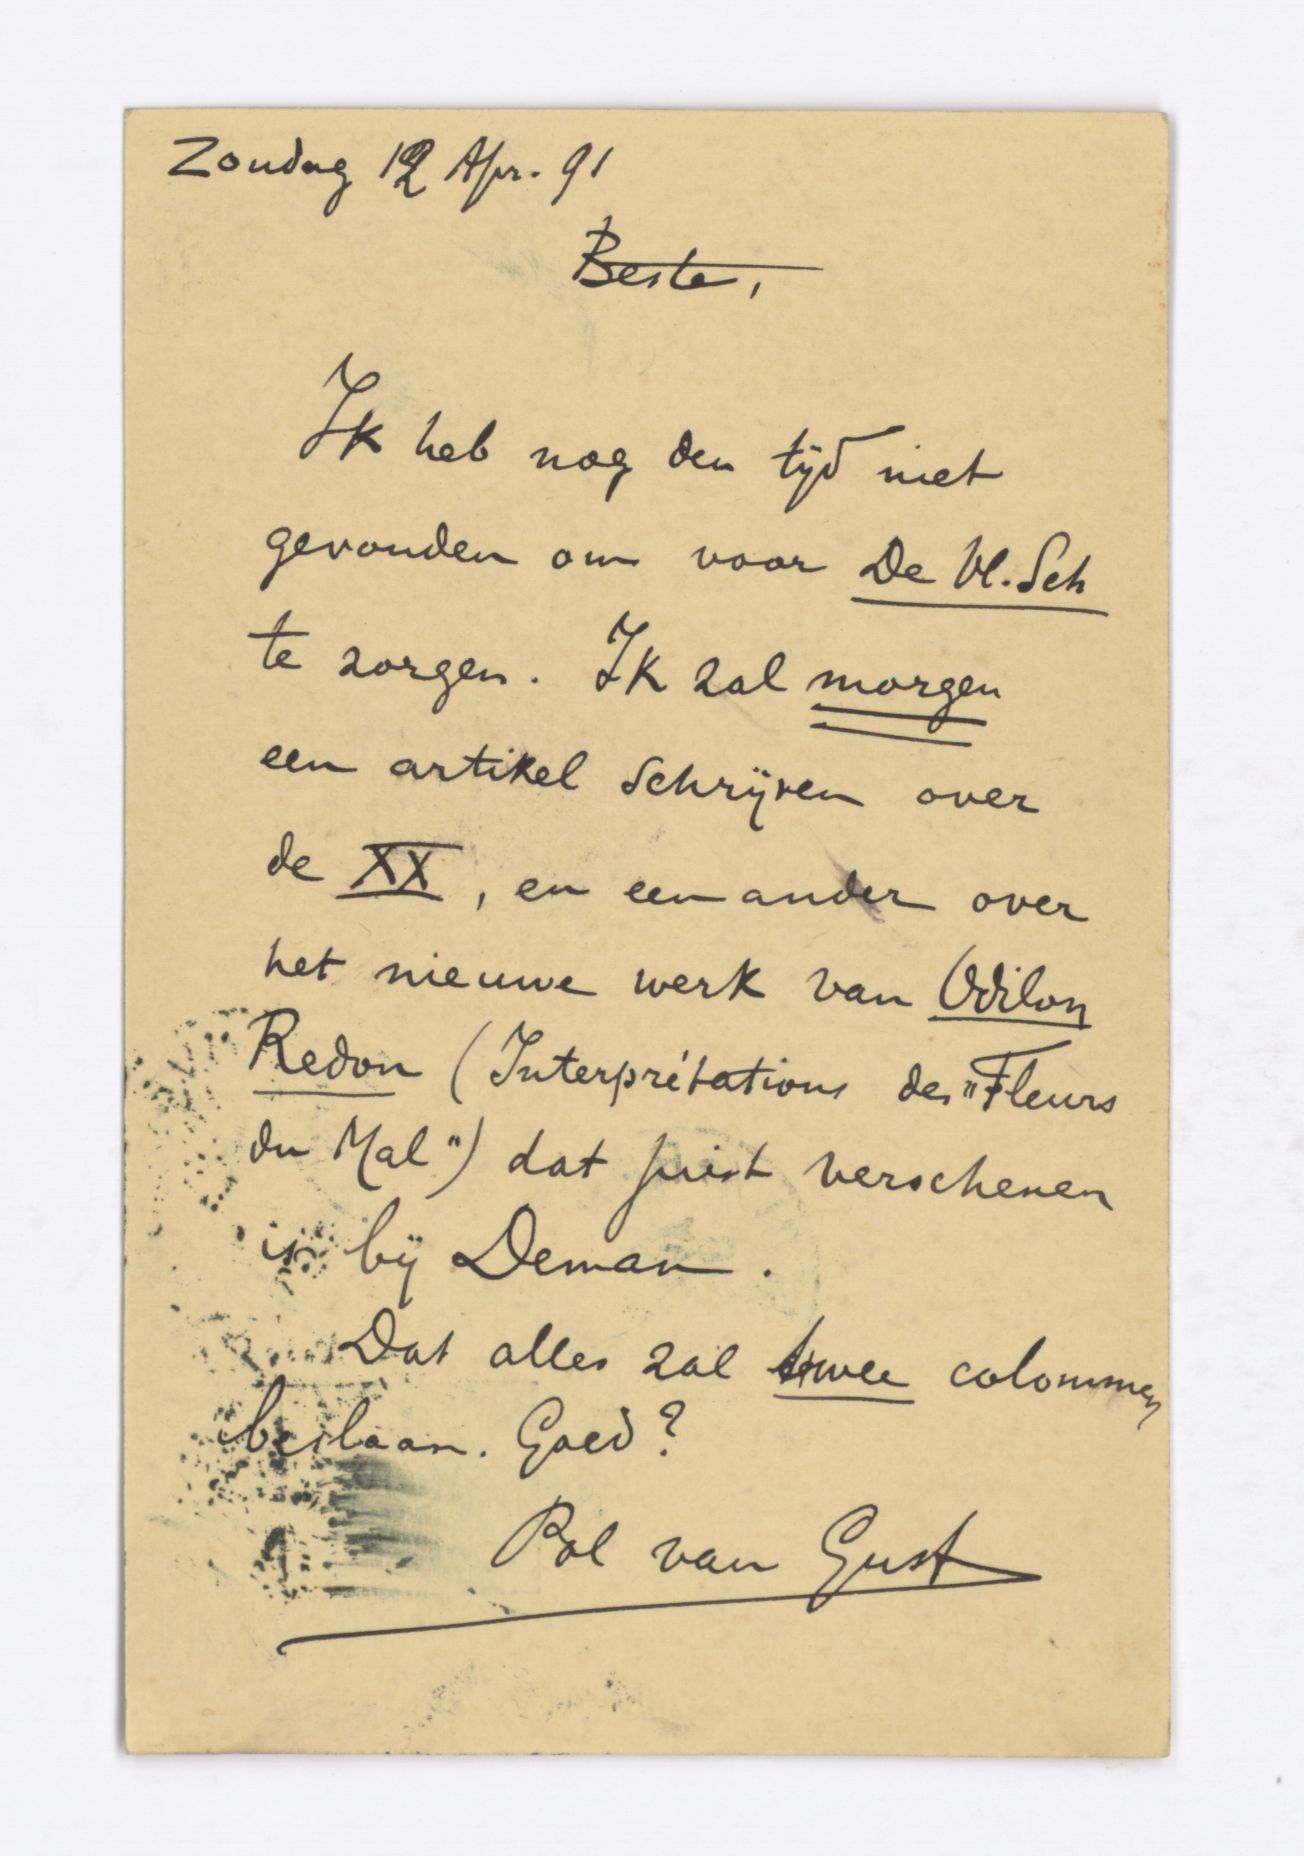 Zondag 12 Apr. 91
Beste,
Ik heb nog den tijd niet
gevonden om voor De Vl. Sch
te zorgen. Ik zal morgen
een artikel schrijven over
de XX, en een ander over
het nieuwe werk van Odilon
Redon (Interprétations des "Fleurs
du Mal") dat juist verschenen
is bij Deman.
Dat alles zal twee colommen
beslaan. Goed?
Pol van Gust